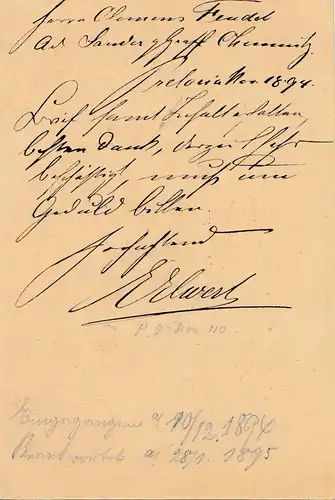 Herrn Clemens Fendel
Ad. Sander Chemnitz.
Pretoria Nov 1894.
Brief samt Inhalt erhalten,
besten Dank, derzeit sehr
beschäftigt, muß um
Geduld bitten.
Hochachtend
Elwert
P. D. 110
Eingegangen a/ 10/12. 1894
Beantwortet a/ 28/1. 1895